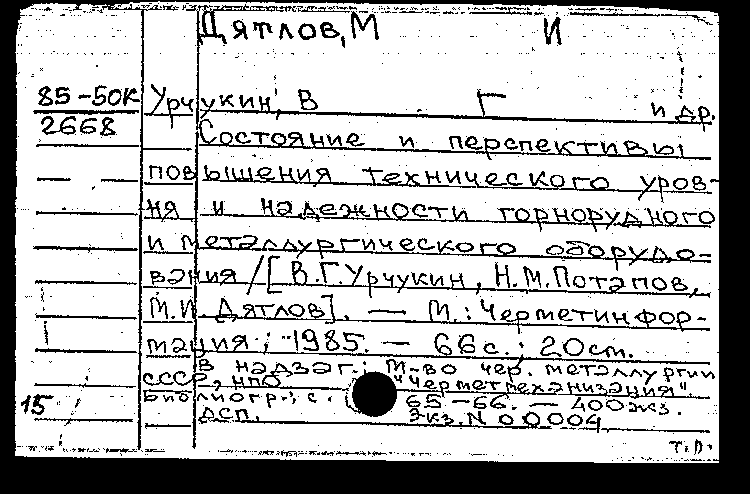 Дятлов, М И
85-50К Урчукин, В Г и др.
2668 Состояние и перспективы
повышения технического уров-
ня и надежности горнорудного
и металлургического оборудо-
вания / [В.Г.Урчукин, Н.М.Потапов,
М.И. Дятлов]. — М.: Черметинфор-
мация, 1985. — 66 с.; 20 см.
В надзаг.: М-во чер. металлургии
СССР, НПО "Черметмеханизация".
Библиогр.: с. 65-66. — 400 экз.
15 ДСП. Экз. N 00004
Т.П.